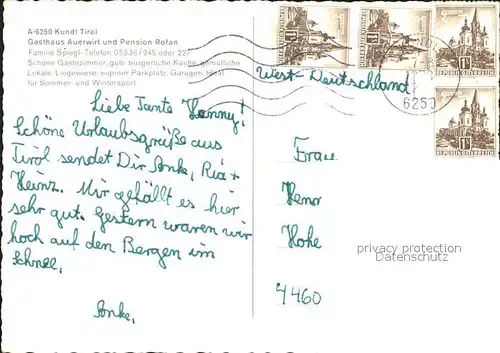 A-6250 Kundl Tirol
Gasthaus Auerwirt und Pension Rofan
Familie Spiegl-Telefon 05338/245 oder 227
Schöne Gästezimmer, gute bürgerliche Küche, gemütliche
Lokale, Liegewiese, eigener Parkplatz, Garagen. Ideal
für Sommer- und Wintersport
Liebe Tante Henny!
Schöne Urlaubsgrüße aus
Tirol sendet Dir Anke, Ria +
Heinz. Mir gefällt es hier
sehr gut. Gestern waren wir
hoch auf den Bergen im
Schnee.
Anke.
West-Deutschland
6250
Frau
Hohe
4460
privacy protection
Datenschutz
REPUBLIK ÖSTERREICH